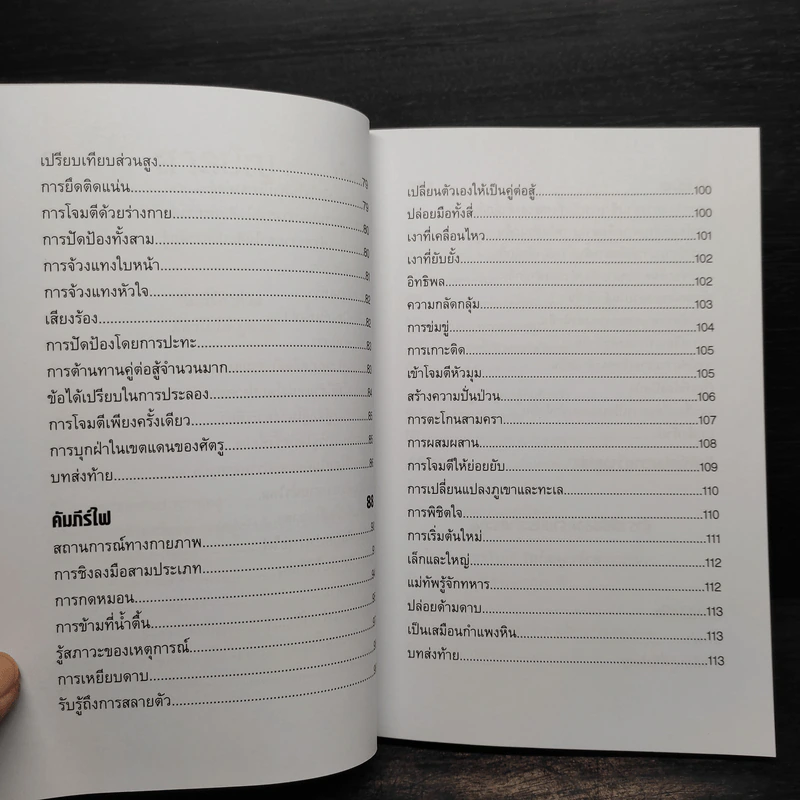 เปรียบเทียบส่วนสูง........................79
การยึดติดแน่น........................79
การโจมตีด้วยร่างกาย........................80
การปัดป้องทั้งสาม........................80
การจ้วงแทงใบหน้า........................81
การจ้วงแทงหัวใจ........................82
เสียงร้อง........................82
การปัดป้องโดยการปะทะ........................83
การต้านทานคู่ต่อสู้จำนวนมาก........................83
ข้อได้เปรียบในการประลอง........................84
การโจมตีเพียงครั้งเดียว........................
การบุกฝ่าในเขตแดนของศัตรู........................
บทส่งท้าย........................
คัมภีร์ไฟ
สถานการณ์ทางกายภาพ........................
การชิงลงมือสามประเภท........................
การกดหมอน........................
การข้ามที่น้ำตื้น........................
รู้สภาวะของเหตุการณ์........................
การเหยียบดาบ........................
รับรู้ถึงการสลายตัว........................
เปลี่ยนตัวเองให้เป็นคู่ต่อสู้........................100
ปล่อยมือทั้งสี่........................100
เงาที่เคลื่อนไหว........................101
เงาที่ยับยั้ง........................102
อิทธิพล........................102
ความกลัดกลุ้ม........................103
การข่มขู่........................104
การเกาะติด........................105
เข้าโจมตีหัวมุม........................105
สร้างความปั่นป่วน........................106
การตะโกนสามครา........................107
การผสมผสาน........................108
การโจมตีให้ย่อยยับ........................109
การเปลี่ยนแปลงภูเขาและทะเล........................110
การพิชิตใจ........................110
การเริ่มต้นใหม่........................111
เล็กและใหญ่........................112
แม่ทัพรู้จักทหาร........................112
ปล่อยด้ามดาบ........................113
เป็นเสมือนกำแพงหิน........................113
บทส่งท้าย........................113